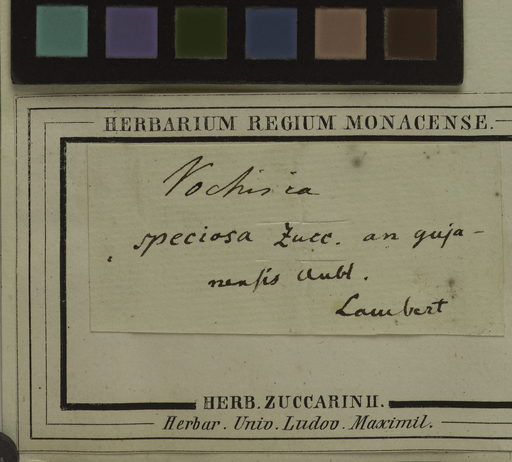 HERBARIUM REGIUM MONACENSE.
Vochisia
speciosa Zucc. an guja-
nensis Aubl.
Lambert
HERB. ZUCCARINII.
Herbar. Univ. Ludov. Maximil.